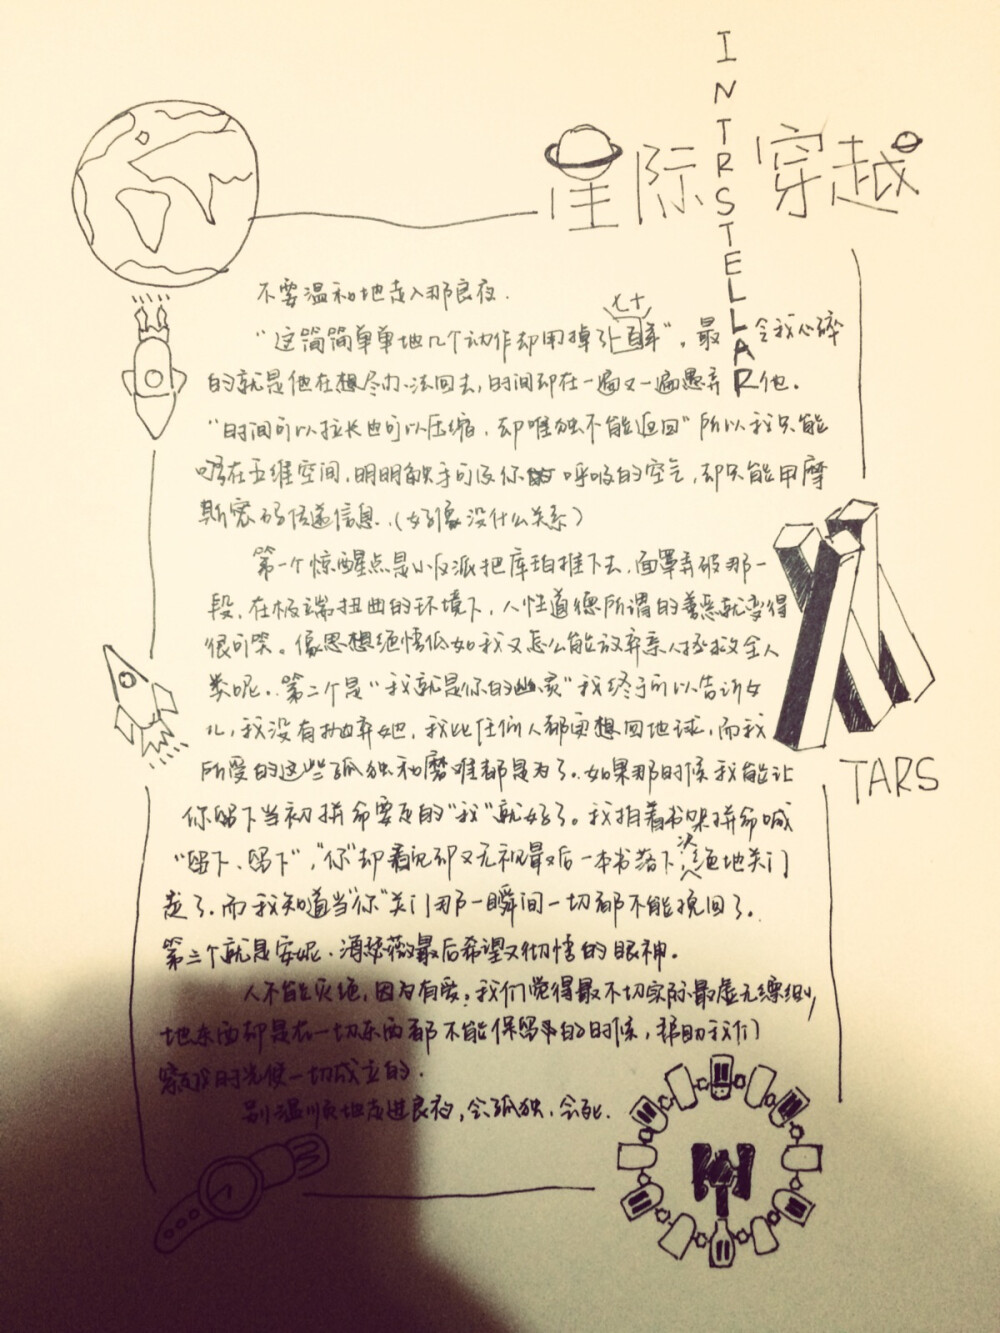 INTRSTELLAR
星际穿越
不要温和地走入那良夜.
七十
"这简简单单地几个动作却用掉了百年"，最令我心碎
的就是他在想尽办法回去，时间却在一遍又一遍愚弄他.
"时间可以拉长也可以压缩，却唯独不能返回"所以我只能
在五维空间，明明触手可及你呼吸的空气，却只能用摩
斯密码传递信息.（好像没什么关系）
第一个惊醒点是小反派把库珀推下去，面罩弄破那一
段，在极端扭曲的环境下，人性道德所谓的善恶就变得
很可笑。像思想绝情低如我又怎么能放弃亲人拯救全人
类呢.第二个是"我就是你的幽灵"我终于可以告诉女
儿，我没有抛弃她，我比任何人都更想回地球，而我
所受的这些孤独和磨难都是为了.如果那时候我能让
你留下当初拼命要走的"我"就好了。我拍着书架拼命喊
"留下、留下"，"你"却看见却又无视最后一本书落下，决绝地关门
走了.而我知道当"你"关门那一瞬间一切都不能挽回了。
第三个就是安妮·海瑟薇最后希望又彻悟的眼神。
人不能灭绝，因为有爱。我们觉得最不切实际最虚无缥缈
地东西却是在一切东西都不能保留的时候，帮助我们
穿越时光使一切成立的.
别温顺地走进良夜，会孤独，会死.
TARS